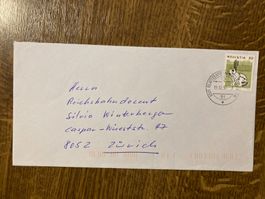 HELVETIA
Herrn
Reichsbahndozent
Silvio Winterberger
Caspar-Wüeststr. 87
8052 Zürich